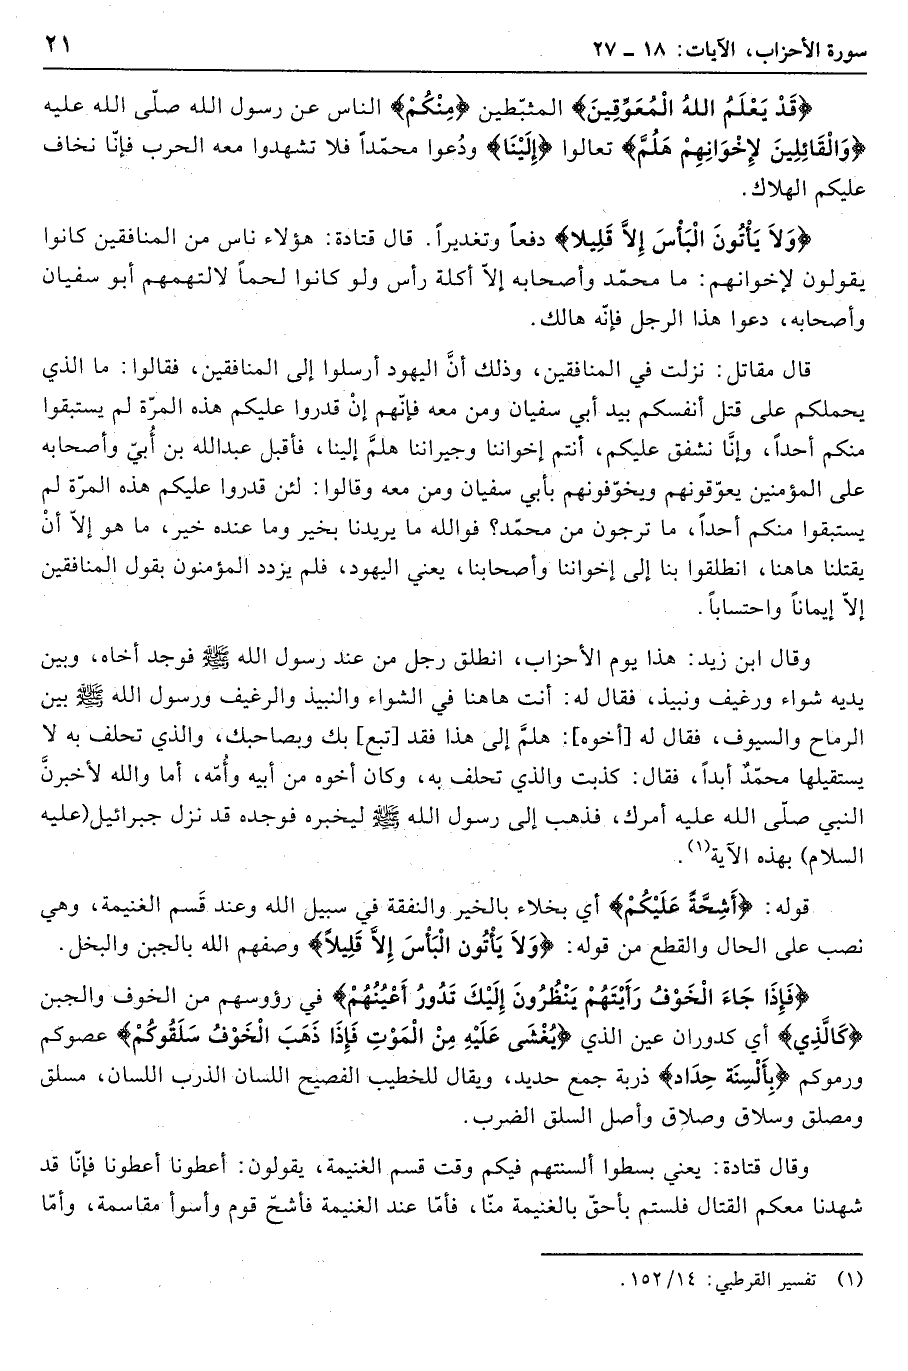 سورة الأحزاب، الآيات: ١٨ ـ ٢٧
٢١
﴿قَدْ يَعْلَمُ اللهُ الْمُعَوِّقِينَ﴾ المثبّطين ﴿مِنْكُمْ﴾ الناس عن رسول الله صلّى الله عليه
﴿وَالْقَائِلِينَ لِإِخْوَانِهِمْ هَلُمَّ﴾ تعالوا ﴿إِلَيْنَا﴾ ودُعوا محمّداً فلا تشهدوا معه الحرب فإنّا نخاف
عليكم الهلاك.
﴿وَلاَ يَأْتُونَ الْبَأْسَ إِلاَّ قَلِيلا﴾ دفعاً وتغديراً. قال قتادة: هؤلاء ناس من المنافقين كانوا
يقولون لإخوانهم: ما محمّد وأصحابه إلاّ أكلة رأس ولو كانوا لحماً لالتهمهم أبو سفيان
وأصحابه، دعوا هذا الرجل فإنّه هالك.
قال مقاتل: نزلت في المنافقين، وذلك أنَّ اليهود أرسلوا إلى المنافقين، فقالوا: ما الذي
يحملكم على قتل أنفسكم بيد أبي سفيان ومن معه فإنّهم إنْ قدروا عليكم هذه المرّة لم يستبقوا
منكم أحداً، وإنَّا نشفق عليكم، أنتم إخواننا وجيراننا هلمَّ إلينا، فأقبل عبدالله بن أُبيّ وأصحابه
على المؤمنين يعوّقونهم ويخوّفونهم بأبي سفيان ومن معه وقالوا: لئن قدروا عليكم هذه المرّة لم
يستبقوا منكم أحداً، ما ترجون من محمّد؟ فوالله ما يريدنا بخير وما عنده خير، ما هو إلاّ أنْ
يقتلنا هاهنا، انطلقوا بنا إلى إخواننا وأصحابنا، يعني اليهود، فلم يزدد المؤمنون بقول المنافقين
إلاّ إيماناً واحتساباً.
وقال ابن زيد: هذا يوم الأحزاب، انطلق رجل من عند رسول الله ﷺ فوجد أخاه، وبين
يديه شواء ورغيف ونبيذ، فقال له: أنت هاهنا في الشواء والنبيذ والرغيف ورسول الله ﷺ بين
الرماح والسيوف، فقال له [أخوه]: هلمَّ إلى هذا فقد [تبع] بك وبصاحبك، والذي تحلف به لا
يستقيلها محمّدٌ أبداً، فقال: كذبت والذي تحلف به، وكان أخوه من أبيه وأُمّه، أما والله لأخبرنَّ
النبي صلّى الله عليه أمرك، فذهب إلى رسول الله ﷺ ليخبره فوجده قد نزل جبرائيل(عليه
السلام) بهذه الآية(١).
قوله: ﴿أَشِحَّةً عَلَيْكُمْ﴾ أي بخلاء بالخير والنفقة في سبيل الله وعند قَسم الغنيمة، وهي
نصب على الحال والقطع من قوله: ﴿وَلاَ يَأْتُون الْبَأْسَ إِلاَّ قَلِيلاً﴾ وصفهم الله بالجبن والبخل.
﴿فَإِذَا جَاءَ الْخَوْفُ رَأَيْتَهُمْ يَنْظُرُونَ إِلَيْكَ تَدُورُ أَعْيُنُهُمْ﴾ في رؤوسهم من الخوف والجبن
﴿كَالَّذِي﴾ أي كدوران عين الذي ﴿يُغْشَى عَلَيْهِ مِنْ الْمَوْتِ فَإِذَا ذَهَبَ الْخَوْفُ سَلَقُوكُمْ﴾ عصوكم
ورموكم ﴿بِأَلْسِنَة حِدَاد﴾ ذربة جمع حديد، ويقال للخطيب الفصيح اللسان الذرب اللسان، مسلق
ومصلق وسلاق وصلاق وأصل السلق الضرب.
وقال قتادة: يعني بسطوا ألسنتهم فيكم وقت قسم الغنيمة، يقولون: أعطونا أعطونا فإنّا قد
شهدنا معكم القتال فلستم بأحقّ بالغنيمة منّا، فأمّا عند الغنيمة فأشحّ قوم وأسوأ مقاسمة، وأمّا
(١) تفسير القرطبي: ١٤/ ١٥٢.